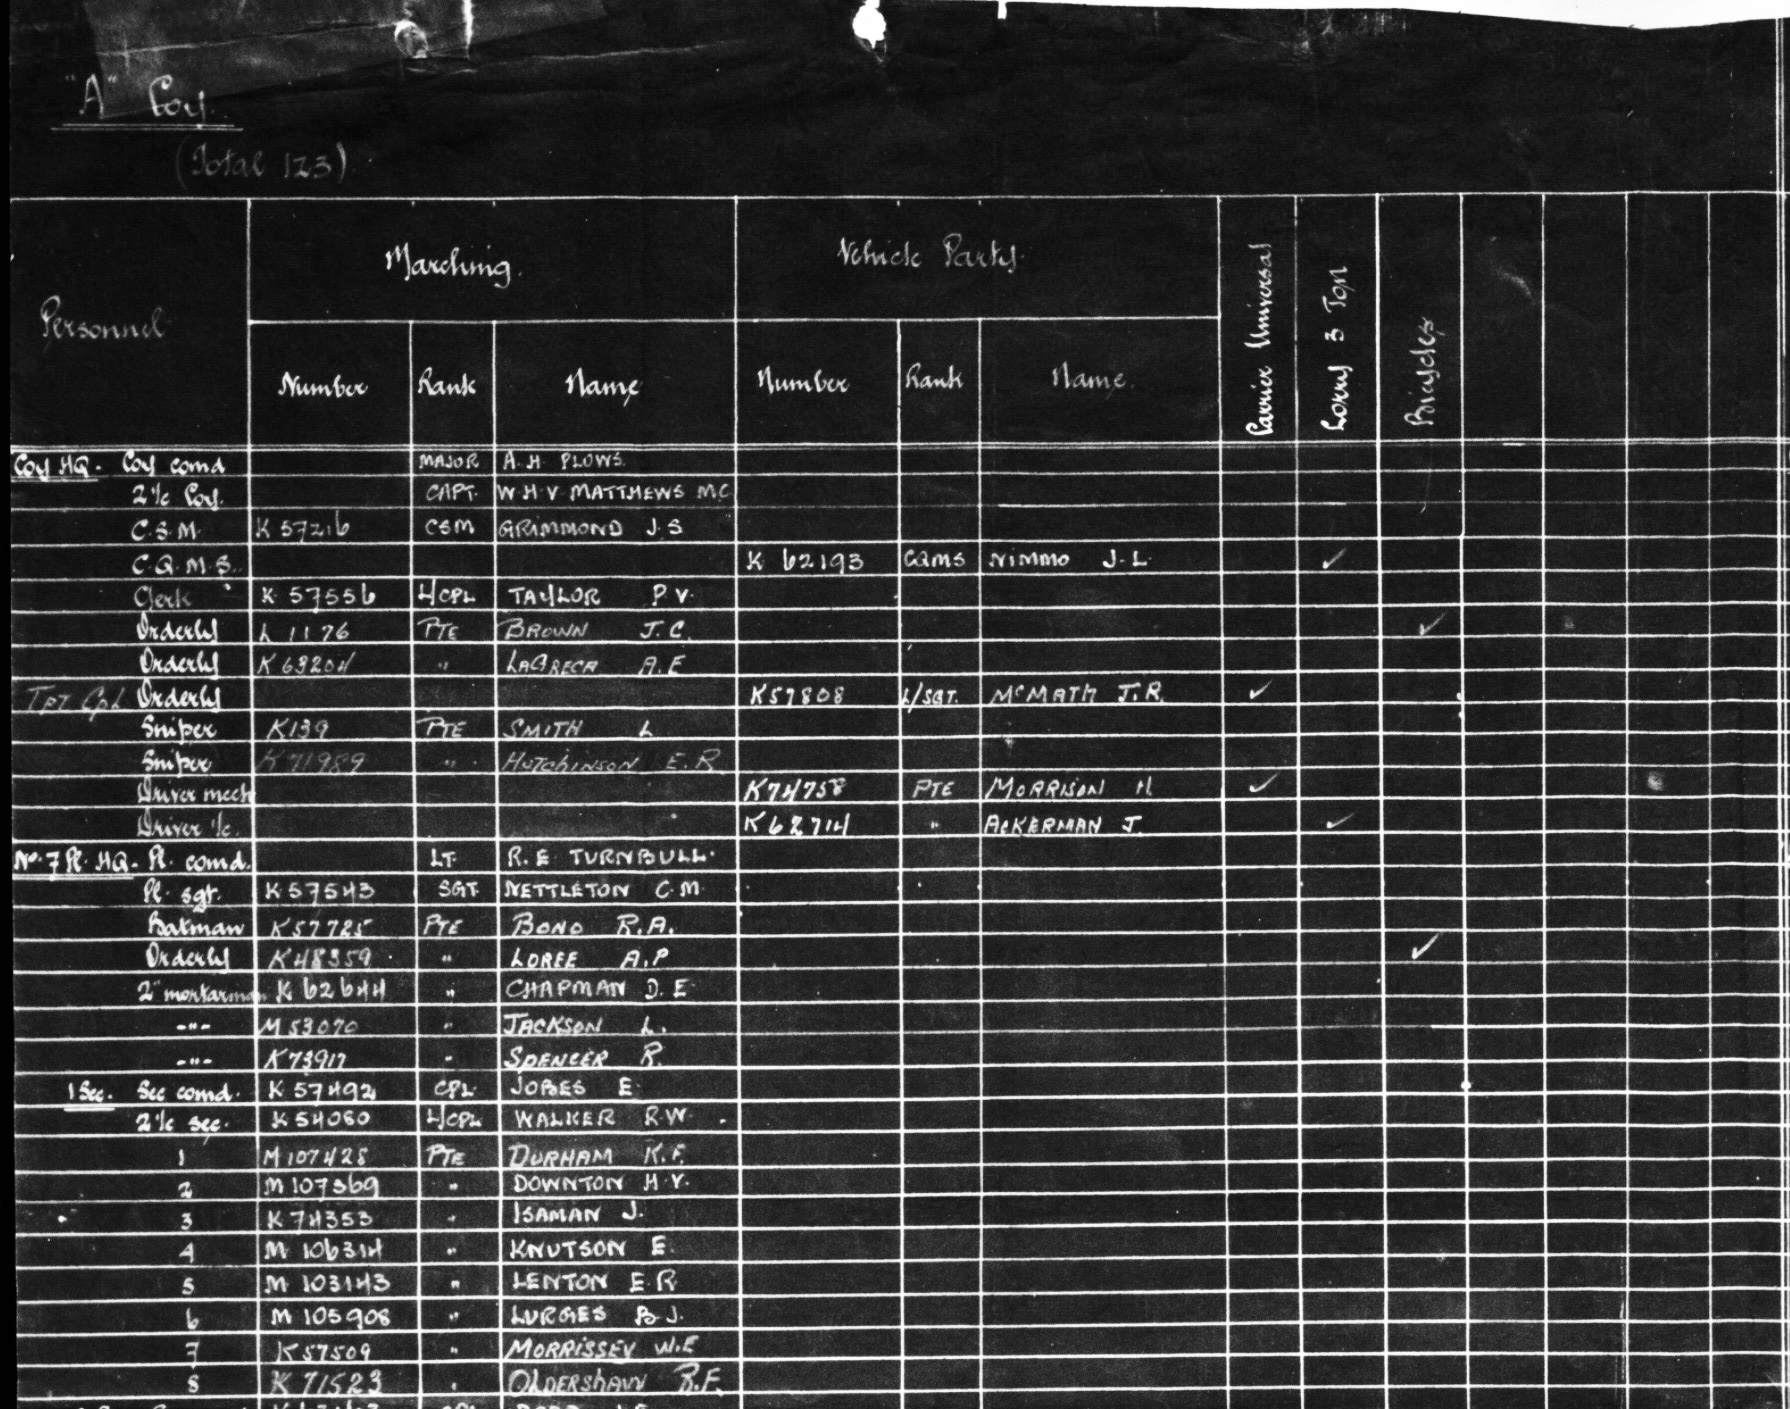 "A" Coy.
(Total 123)
Personnel
Marching.
Vehicle Party.
Carrier Universal
Lorry 3 Ton
Bicycles
Number Rank Name Number Rank Name.
Coy HQ. Coy comd MAJOR A.H. PLOWS.
2 i/c Coy. CAPT. W.H.V. MATTHEWS MC
C.S.M. K 57216 CSM GRIMMOND J.S
C.Q.M.S. K 62193 CQMS NIMMO J.L. ✓
Clerk K 57556 L/CPL TAYLOR P.V.
Orderly L 1176 PTE BROWN J.C. ✓
Orderly K 63204 " LAGRECA A.E
TPT Cpl Orderly K57808 L/SGT. McMATH J.R. ✓
Sniper K139 PTE SMITH L
Sniper K71989 " HUTCHINSON E.R
Driver mech K74758 PTE MORRISON H ✓
Driver i/c. K62714 " ACKERMAN J. ✓
No. 7 Pl. HQ. Pl. comd. LT. R.E. TURNBULL.
Pl. sgt. K57543 SGT NETTLETON C.M.
Batman K57725 PTE BOND R.A.
Orderly K48359 " LOREE A.P ✓
2" mortarman K 62644 " CHAPMAN D.E.
-"- M53070 " JACKSON L.
-"- K73917 " SPENCER R.
1 Sec. Sec comd. K 57492 CPL JOBES E.
2 i/c sec. K54080 L/CPL WALKER R.W.
1 M107428 PTE DURHAM K.F.
2 M 107369 " DOWNTON H.V.
3 K 74353 " ISAMAN J.
4 M 106314 " KNUTSON E.
5 M 103143 " LENTON E.R
6 M 105908 " LURGES B.J.
7 K57509 " MORRISSEY W.E
8 K 71523 " OLDERSHAW R.F.